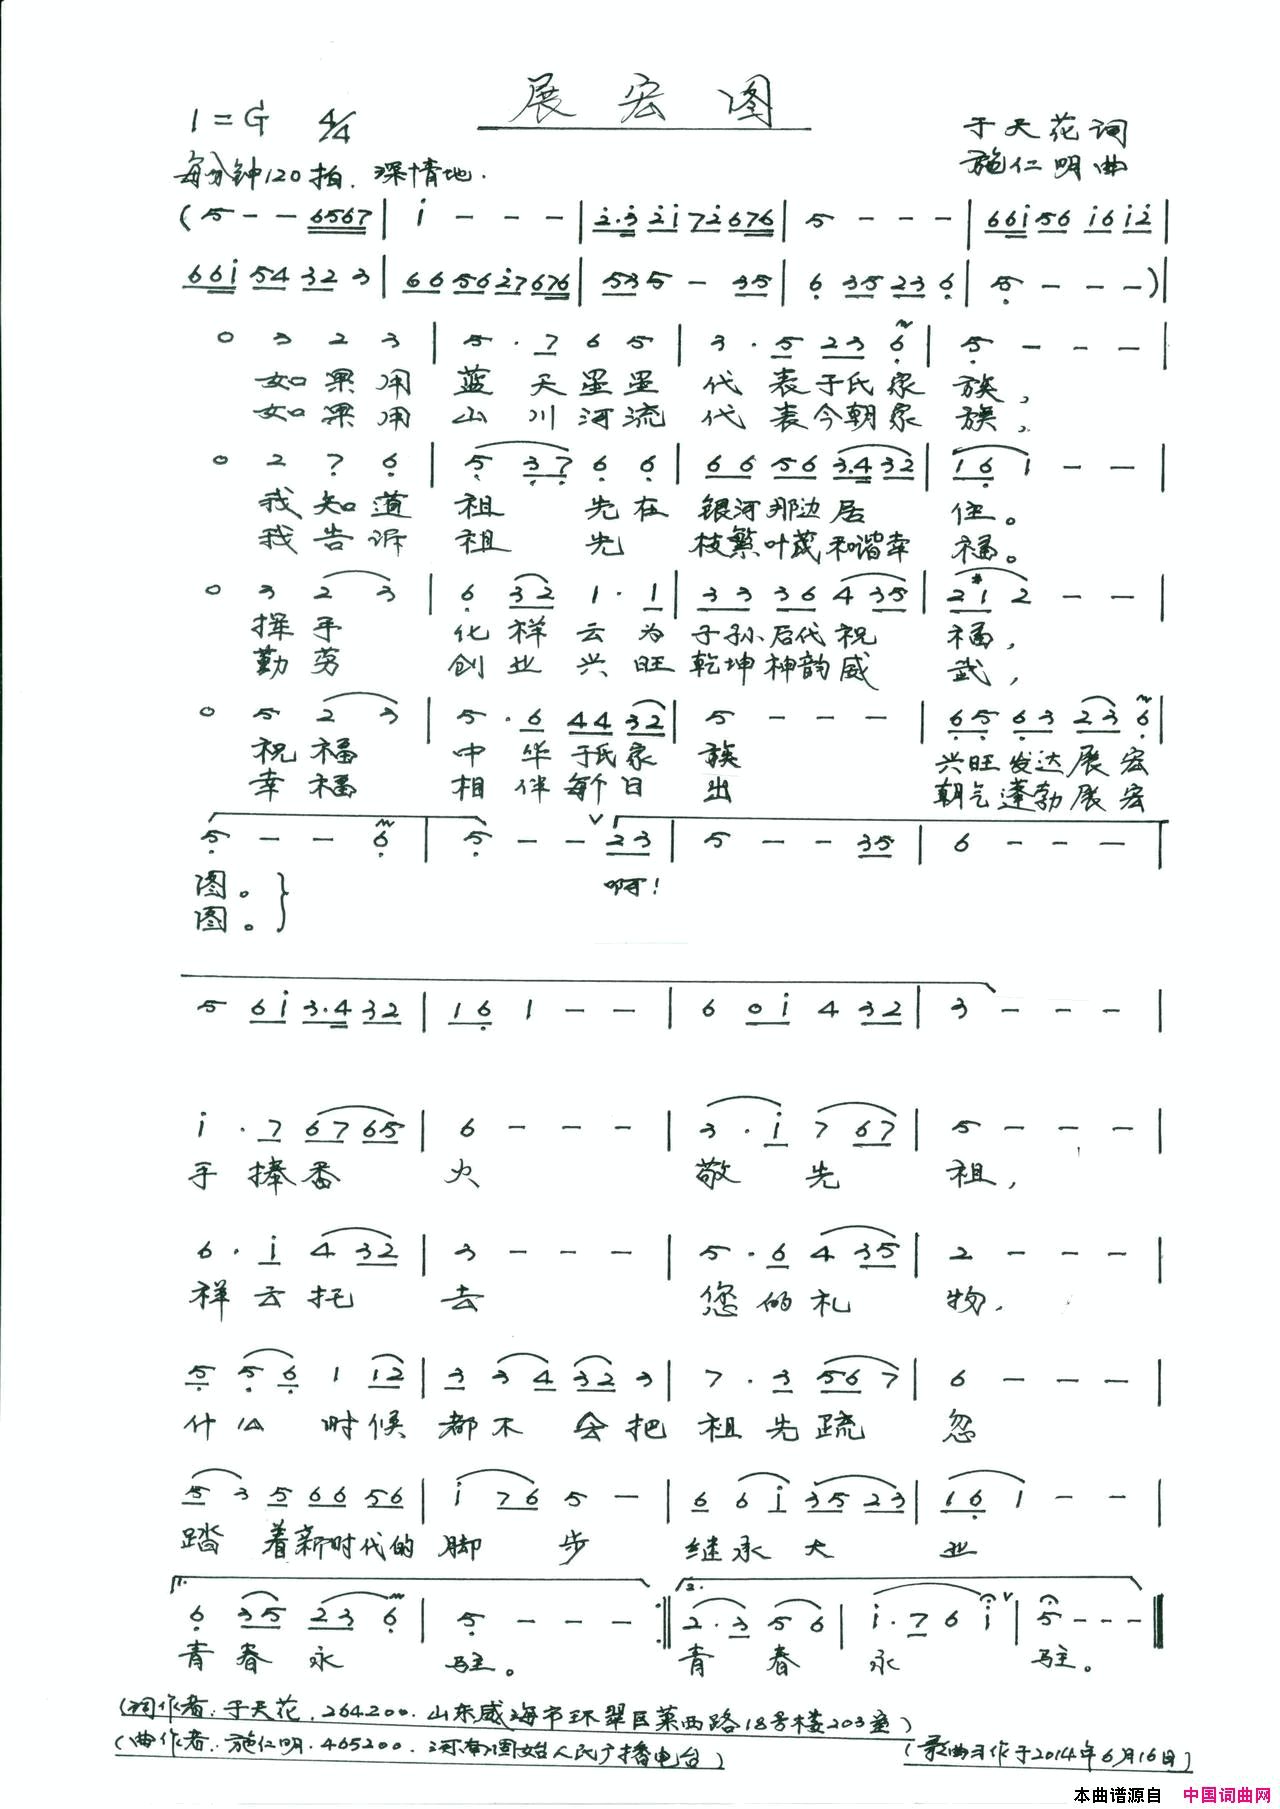 展宏图
1=G 4/4
于天花词
施仁明曲
每分钟120拍. 深情地.
(5 - - 6567 | i - - - | 2·3 2i 72 676 | 5 - - - | 66i 56 i6 i2 |
66i 54 32 3 | 66 56 i7 676 | 535 - 35 | 6 35 23 6 | 5 - - - ) |
0 3 2 3 | 5 · 7 6 5 | 3 · 5 23 6 | 5 - - - |
如果用 蓝天星星 代表于氏家 族,
如果用 山川河流 代表今朝家 族,
0 2 7 6 | 5 37 6 6 | 66 56 3·4 32 | 1 6 1 - - |
我知道 祖 先在 银河那边居 住。
我告诉 祖 先 枝繁叶茂和谐幸 福。
0 3 2 3 | 6 32 1 · 1 | 33 36 4 35 | 2 #1 2 - - |
挥手 化祥云为 子孙后代祝 福,
勤劳 创业兴旺 乾坤神韵威 武,
0 5 2 3 | 5 · 6 44 32 | 5 - - - | 65 63 23 6 |
祝福 中华于氏家 族 兴旺发达展宏
幸福 相伴每个日 出 朝气蓬勃展宏
5 - - 6 | 5 - - 23 | 5 - - 35 | 6 - - - |
图。 啊!
图。
5 6i 3·4 32 | 1 6 1 - - | 6 0i 4 32 | 3 - - - |
i · 7 67 65 | 6 - - - | 3 · i 7 67 | 5 - - - |
手捧香 火 敬 先 祖,
6 · i 4 32 | 3 - - - | 5 · 6 4 35 | 2 - - - |
祥云托 去 您的礼 物,
5 5 6 1 12 | 3 3 4 32 3 | 7 · 3 56 7 | 6 - - - |
什么 时候 都不 会把 祖先疏 忽
5 3 5 66 56 | i 76 5 - | 6 6 i 35 23 | 1 6 1 - - |
踏 着新时代的 脚 步 继承大 业
1. 2.
6 35 23 6 | 5 - - - :‖ 2·3 5 6 | i · 7 6 i | 5 - - - ‖
青春永 驻。 青 春 永 驻。
(词作者: 于天花. 264200. 山东威海市环翠区莱西路18号楼203室)
(曲作者: 施仁明. 465200. 河南固始人民广播电台)
(歌曲习作于2014年6月16日)
本曲谱源自 中国词曲网